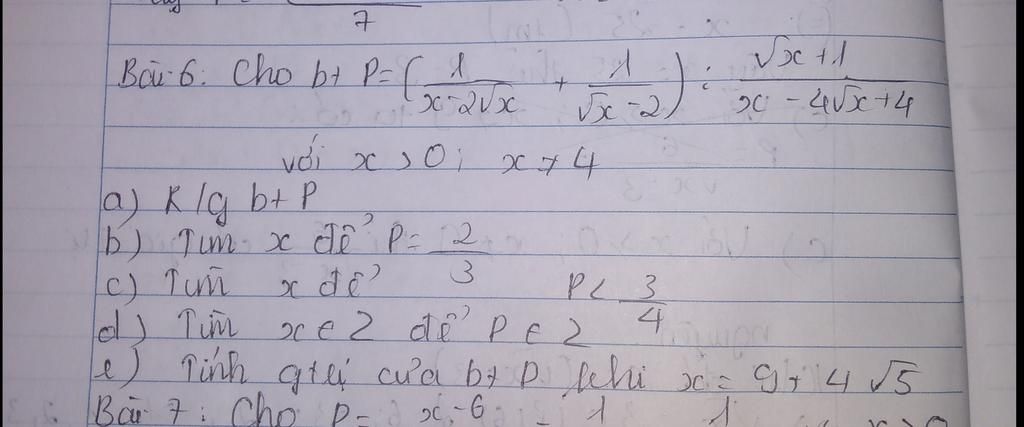 7
Bài 6: Cho b+ P= ( 1/(x-2√x) + 1/(√x-2) ) : (√x+1)/(x-4√x+4)
với x > 0; x ≠ 4
a) R/g b+ P
b) Tìm x để P= 2/3
c) Tìm x để P < 3/4
d) Tìm x ∈ Z để P ∈ Z
e) Tính gtrị của b+ P khi x = 9+ 4√5
Bài 7: Cho P= x-6 - 1 1 x>0